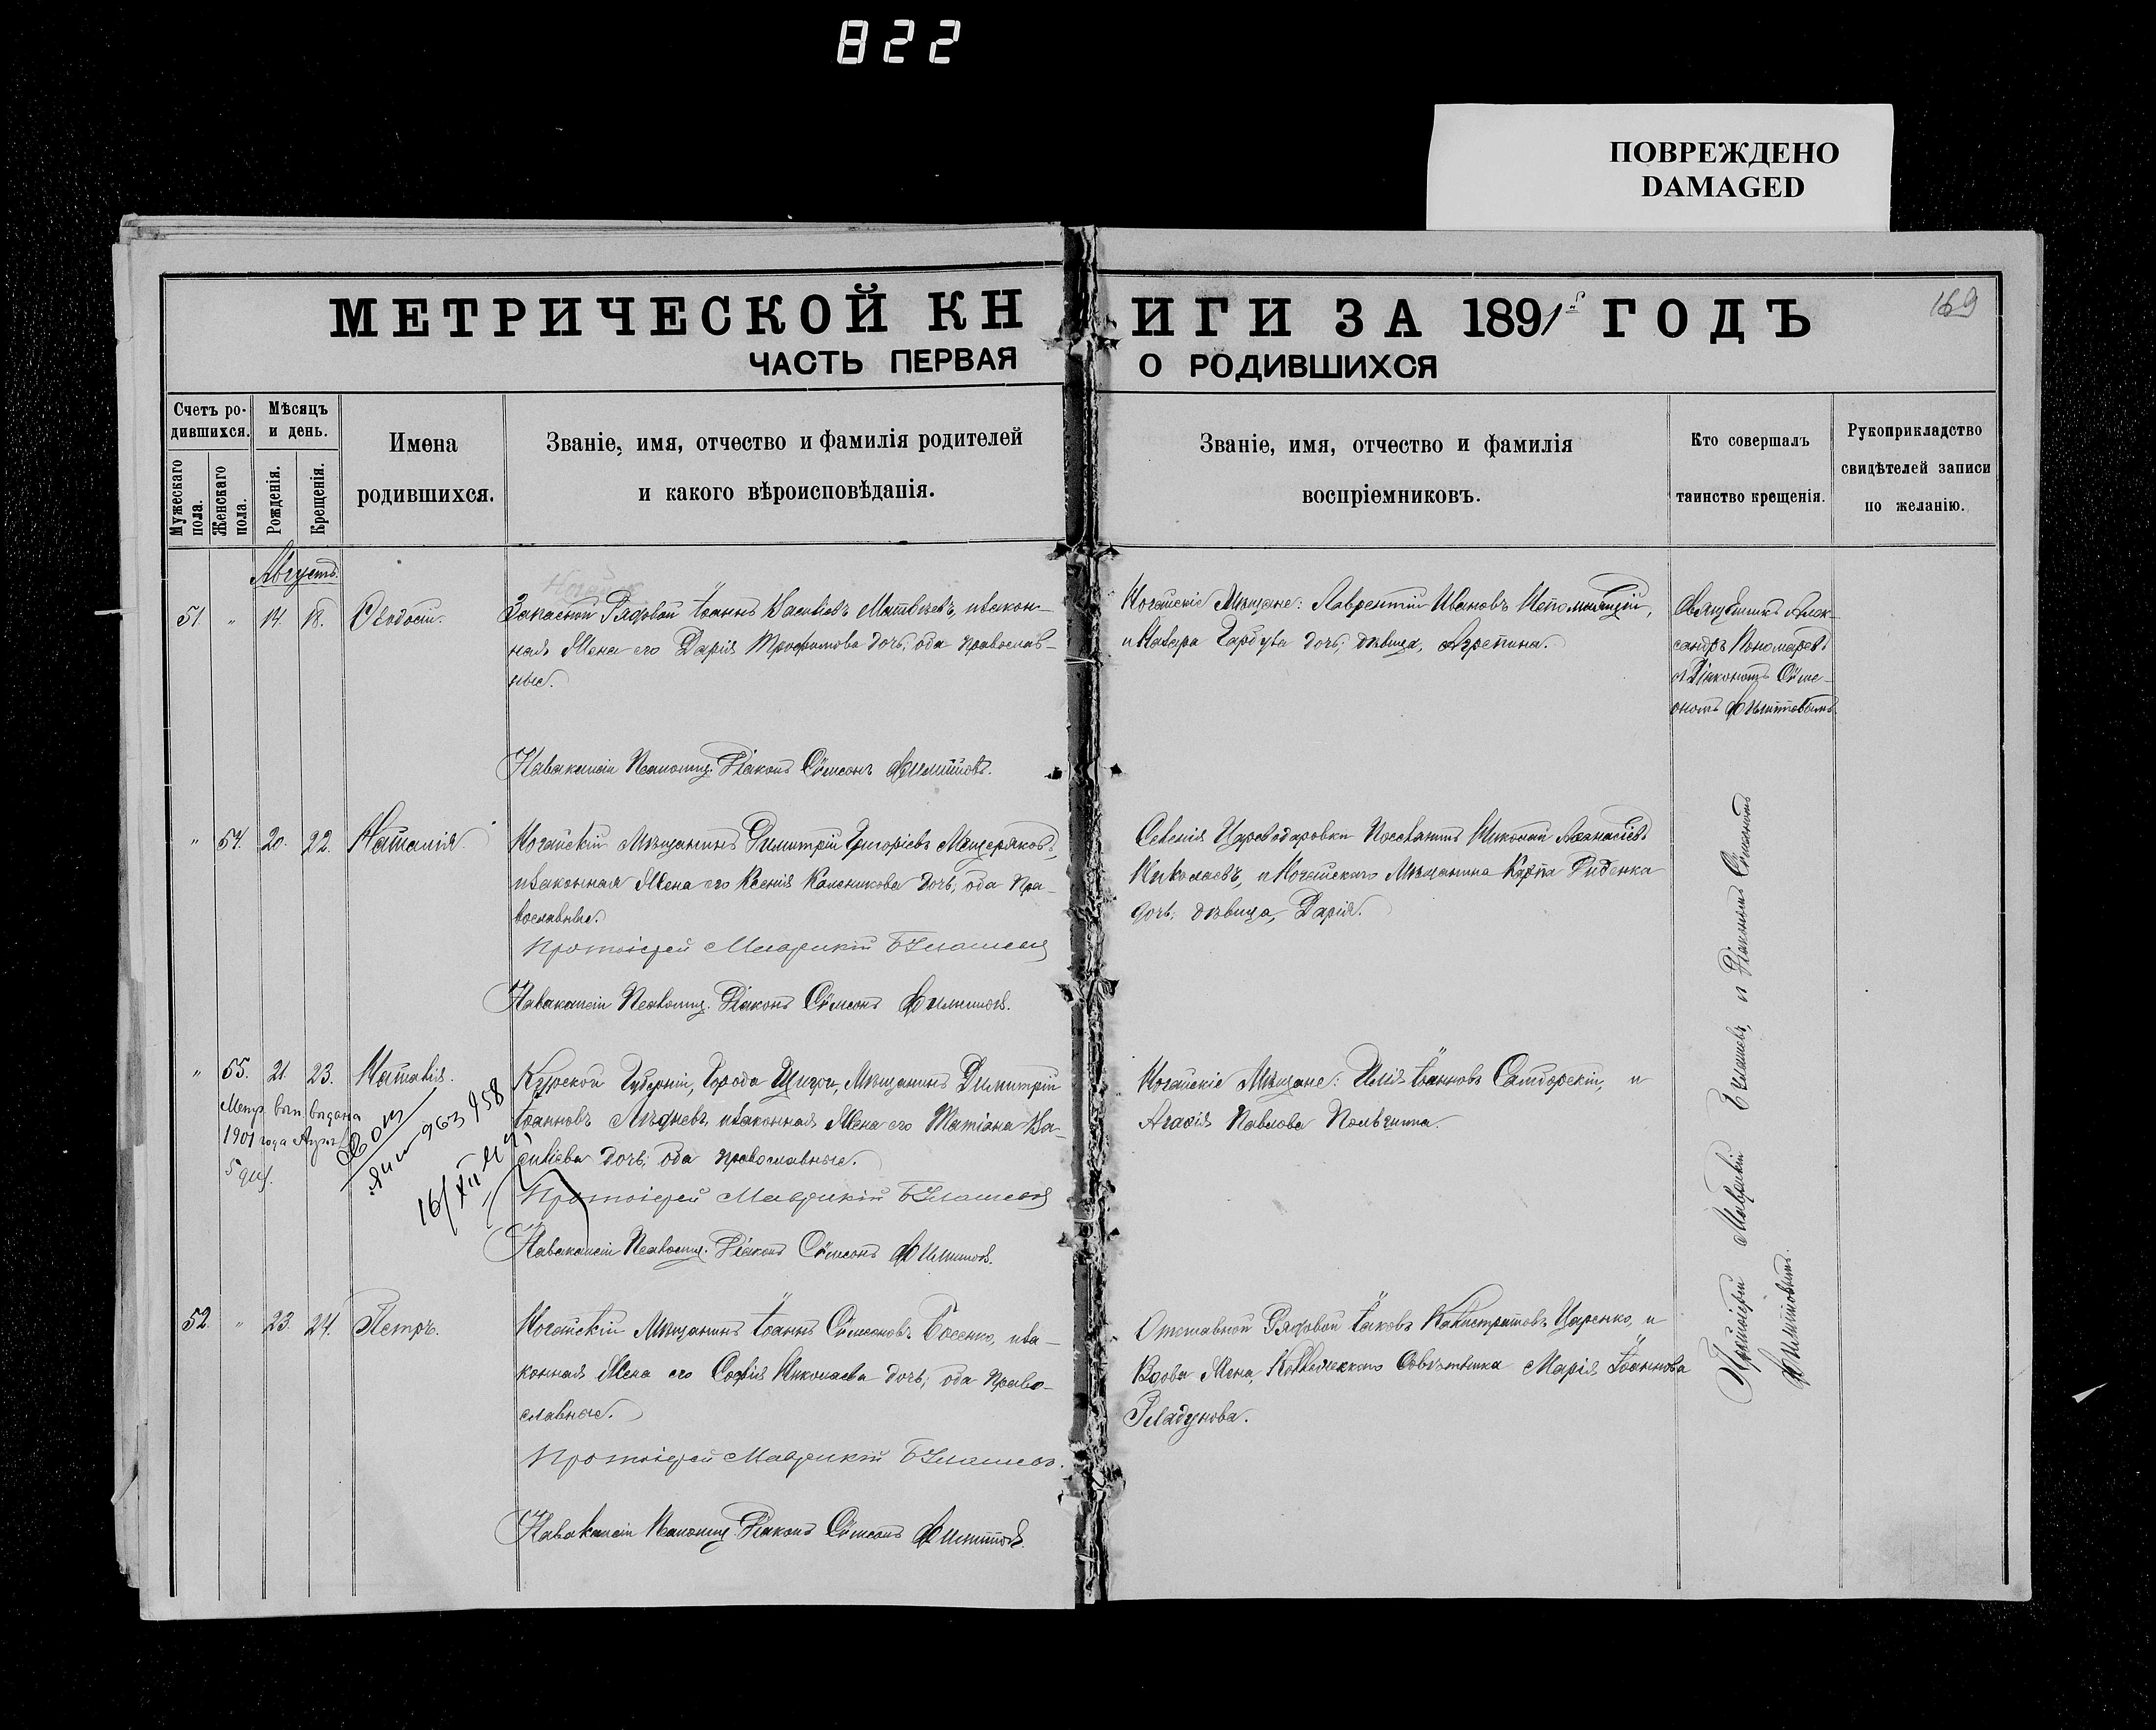 822
ПОВРЕЖДЕНО
DAMAGED
169
МЕТРИЧЕСКОЙ КНИГИ ЗА 1891 ГОДЪ
ЧАСТЬ ПЕРВАЯ О РОДИВШИХСЯ
Счетъ ро-
дившихся.
Мужескаго
пола.
Женскаго
пола.
Мѣсяцъ
и день.
Рожденія.
Крещенія.
Имена
родившихся.
Званіе, имя, отчество и фамилія родителей
и какого вѣроисповѣданія.
Званіе, имя, отчество и фамилія
воспріемниковъ.
Кто совершалъ
таинство крещенія.
Рукоприкладство
свидѣтелей записи
по желанію.
Августъ.
51. " 14. 18. Ѳеодосій.
Запасной Рядовой Іоаннъ Василіевъ Матвѣевъ, и закон-
ная жена его Дарія Трофимова дочь; оба православ-
ные.
Ногайскіе Мѣщане: Лаврентій Ивановъ Непомнящій,
и Назара Гарбуза дочь; дѣвица, Агрепина.
Священникъ Алек-
сандръ Пономаревъ
съ Діакономъ Сѵме-
ономъ Филипповымъ.
На вакансіи Псаломщ. Діаконъ Сѵмеонъ Филипповъ.
" 54. 20. 22. Наталія.
Ногайскій Мѣщанинъ Димитрій Григоріевъ Мещеряковъ,
и законная жена его Ксенія Каленикова дочь; оба пра-
вославные.
Протоіерей Маврикій
На вакансіи Псаломщ. Діаконъ Сѵмеонъ Филипповъ.
Селенія Цареводаровки Поселянинъ Николай Аѳанасіевъ
Николаевъ, и Ногайскаго Мѣщанина Карпа Диденка
дочь; дѣвица, Дарія.
" 55. 21. 23. Наталія.
Метр. вып. выдана
1901 года
5 дня.
963958
16/XII
Курской Губерніи, Города Щигры, Мѣщанинъ Димитрій
Іоанновъ и законная жена его Татіана Ва-
силіева дочь; оба православные.
Протоіерей Маврикій
На вакансіи Псаломщ. Діаконъ Сѵмеонъ Филипповъ.
Ногайскіе Мѣщане: Илія Іоанновъ Самборскій, и
Агафія Павлова
52. " 23. 24. Петръ.
Ногайскій Мѣщанинъ Іоаннъ Сѵмеоновъ Босенко, и за-
конная жена его Софія Николаева дочь; оба право-
славные.
Протоіерей Маврикій
На вакансіи Псаломщ. Діаконъ Сѵмеонъ Филипповъ.
Отставной Рядовой Іаковъ Калистратовъ Царенко, и
Вдова жена, Коллежскаго Совѣтника Марія Іоаннова
Гладунова.
Протоіерей Маврикій и Діаконъ Сѵмеонъ
Филипповымъ.